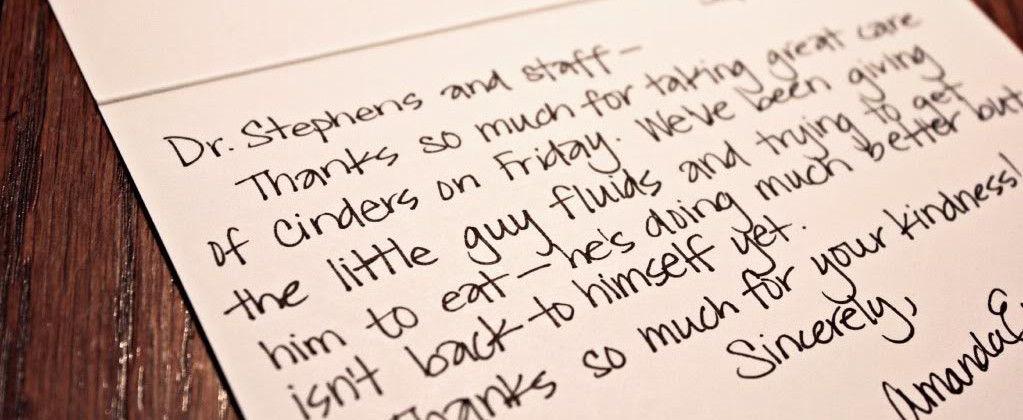 Dr. Stephens and staff—
Thanks so much for taking great care
of Cinders on Friday. We've been giving
the little guy fluids and trying to get
him to eat— he's doing much better but
isn't back to himself yet.
Thanks so much for your kindness!
Sincerely,
Amanda E